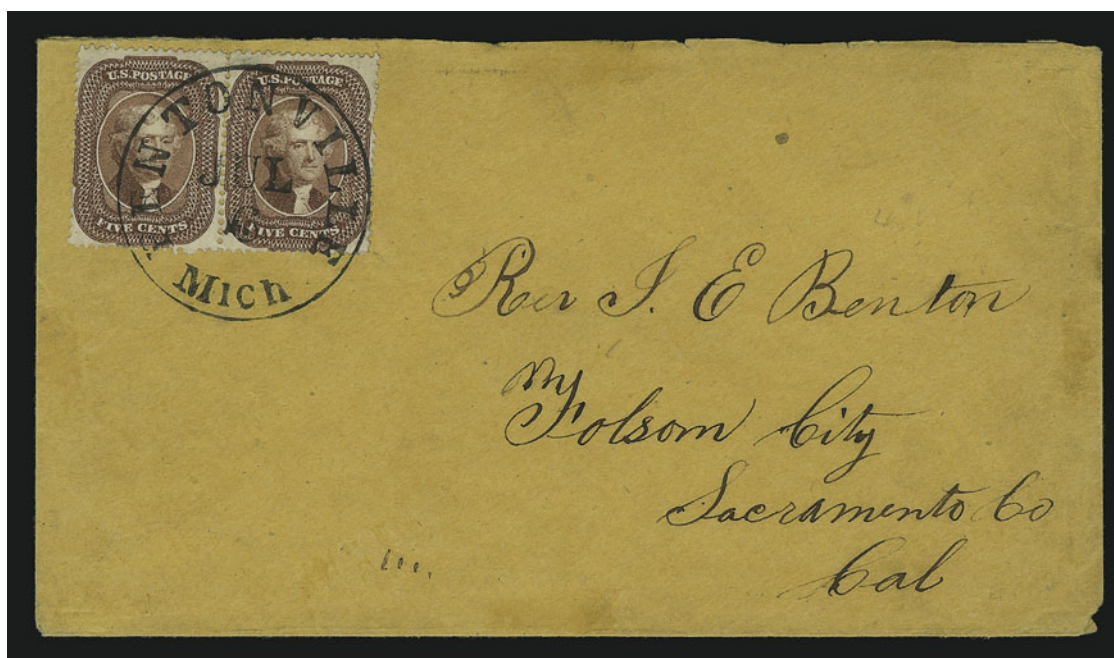 U.S. POSTAGE U.S. POSTAGE
FIVE CENTS FIVE CENTS
FENTONVILLE
JUL
Mich
Rev J. E Benton
Folsom City
Sacramento Co
Cal